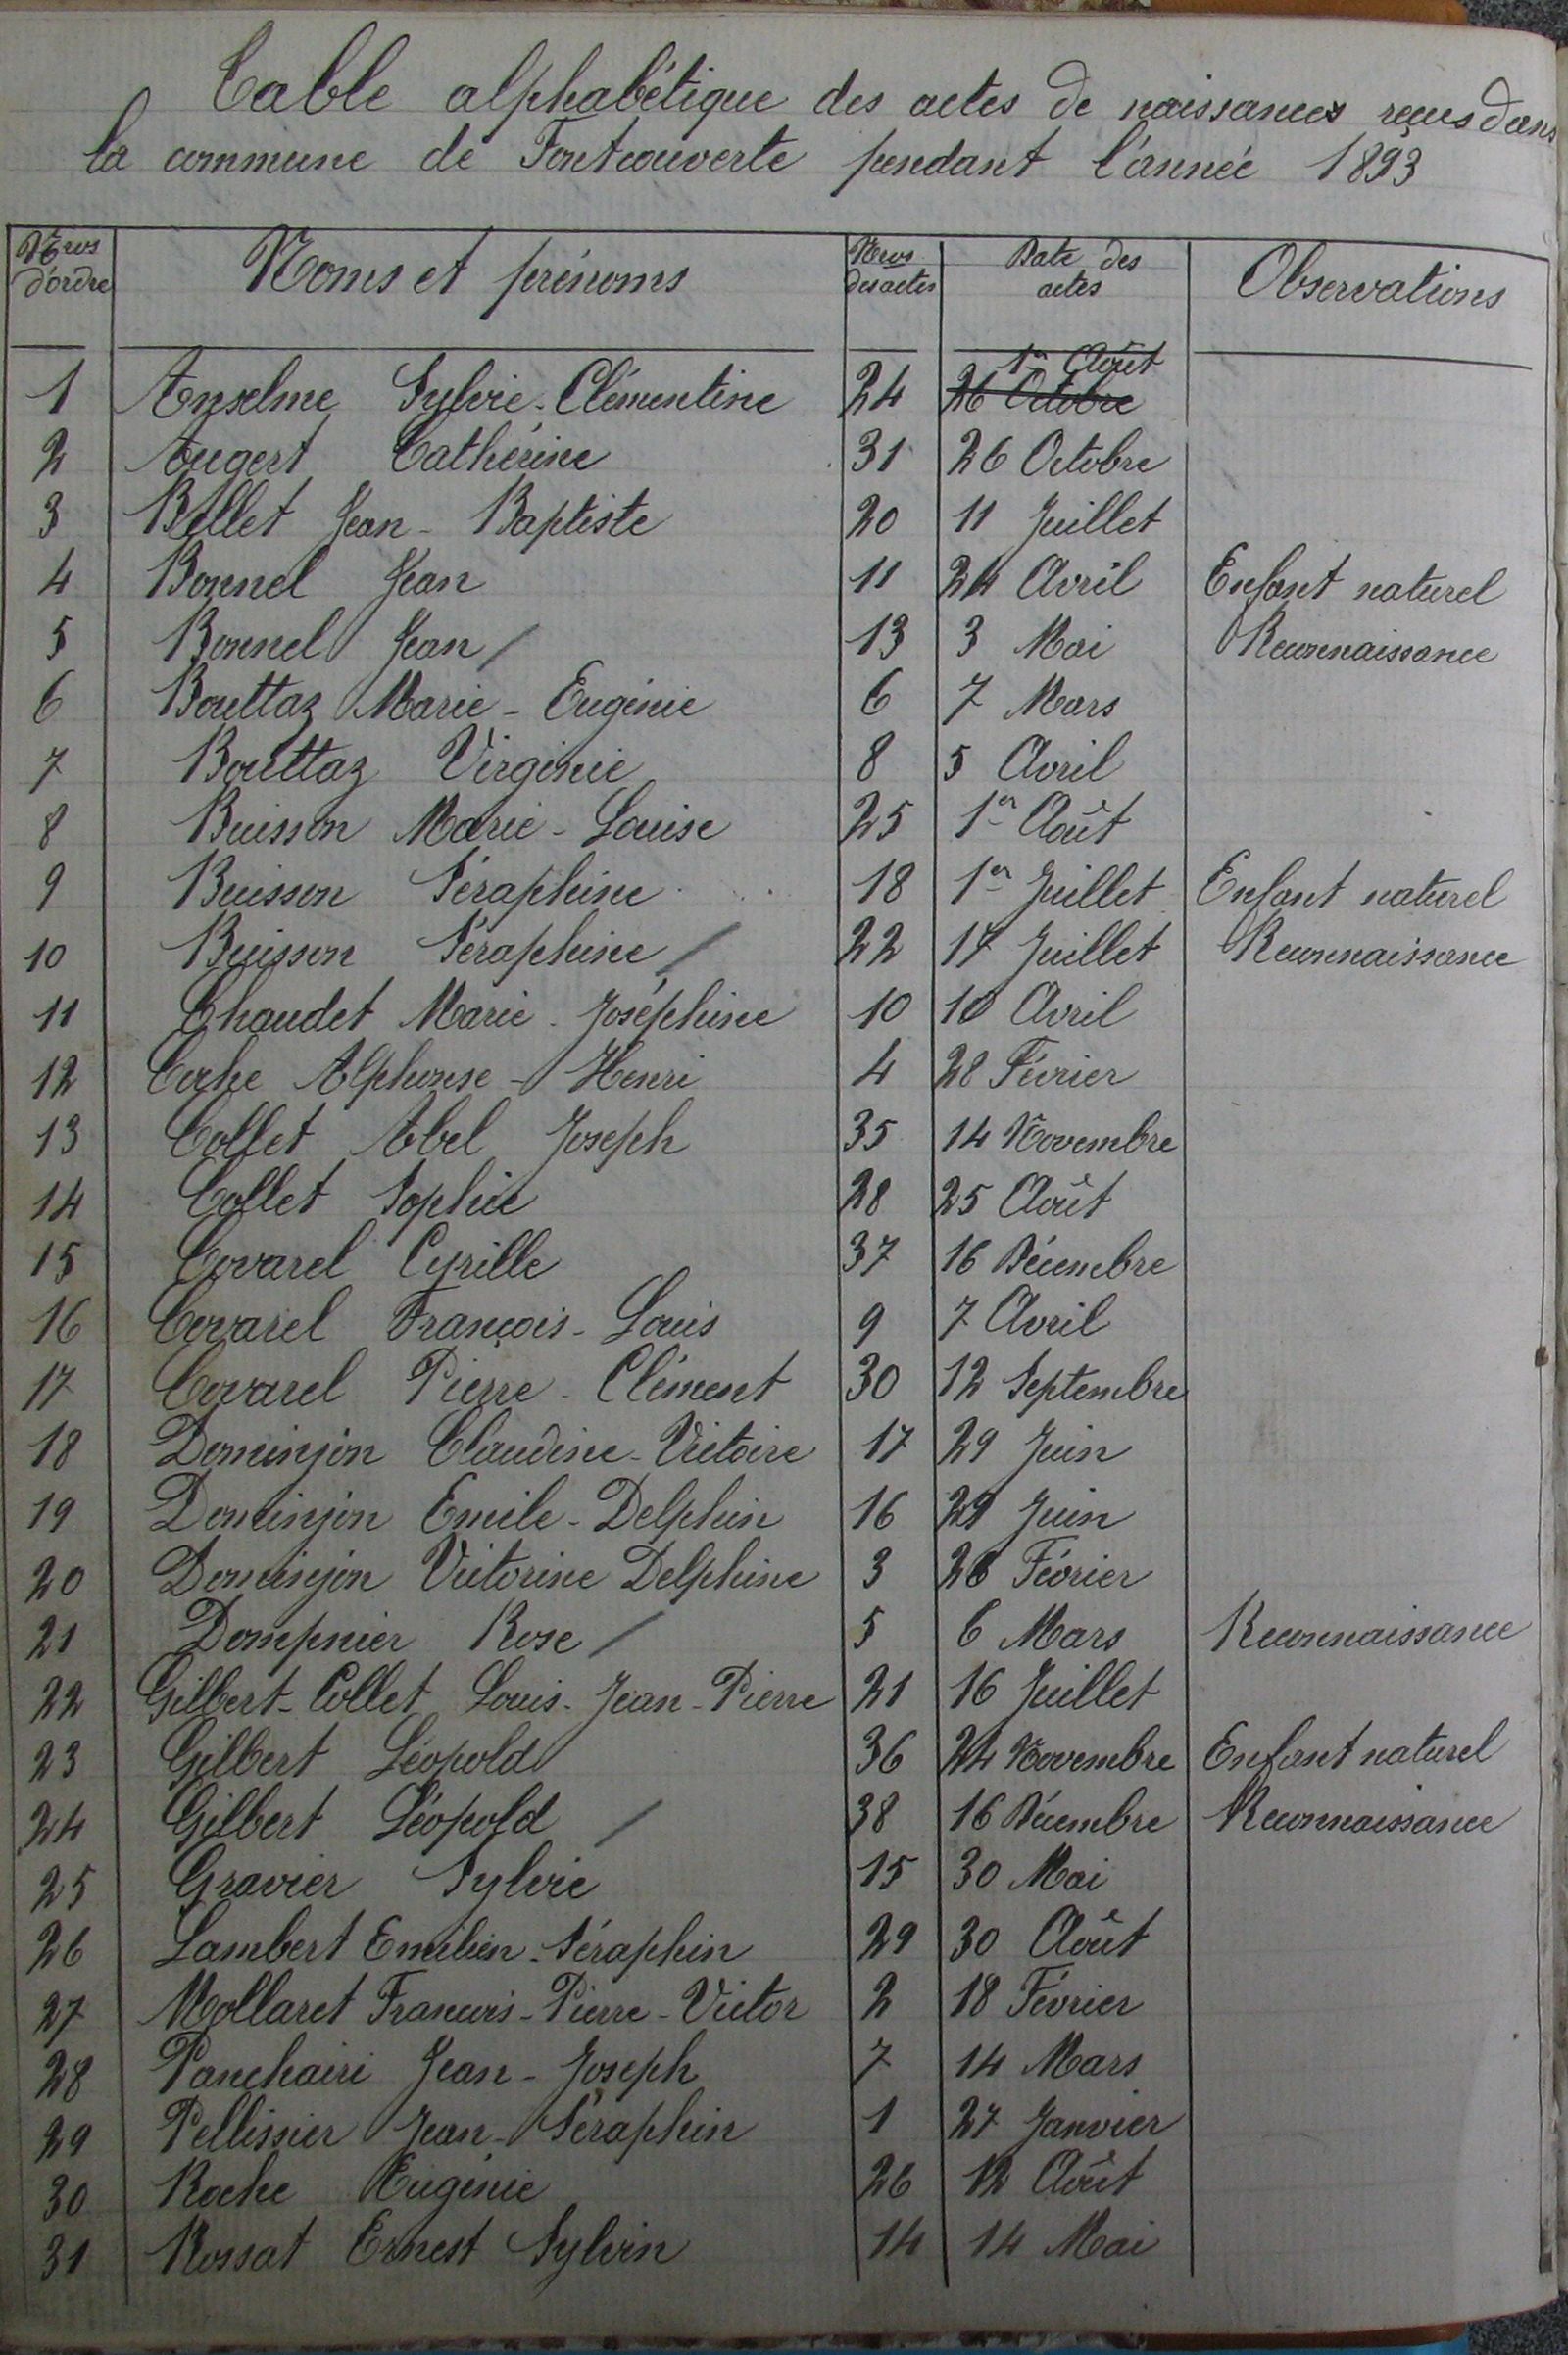 Table alphabétique des actes de naissances reçus dans
la commune de Fontcouverte pendant l'année 1893
Nros d'ordre Noms et prénoms Nros des actes Date des actes Observations
1 Anselme Sylvie-Clémentine 24 26 Octobre 1er Août
2 Augert Cathérine 31 26 Octobre
3 Bellet Jean-Baptiste 20 11 Juillet
4 Bonnel Jean 11 24 Avril Enfant naturel
5 Bonnel Jean / 13 3 Mai Reconnaissance
6 Bouttaz Marie-Eugénie 6 7 Mars
7 Bouttaz Virginie 8 5 Avril
8 Buisson Marie-Louise 25 1er Août
9 Buisson Séraphine 18 1er Juillet Enfant naturel
10 Buisson Séraphine / 22 17 Juillet Reconnaissance
11 Chaudet Marie-Joséphine 10 10 Avril
12 Coche Alphonse-Henri 4 28 Février
13 Collet Abel Joseph 35 14 Novembre
14 Collet Sophie 28 25 Août
15 Covarel Cyrille 37 16 Décembre
16 Covarel François-Louis 9 7 Avril
17 Covarel Pierre-Clément 30 12 Septembre
18 Dominjon Claudine-Victoire 17 29 Juin
19 Dominjon Emile-Delphin 16 29 Juin
20 Dominjon Victorine Delphine 3 26 Février
21 Dompnier Rose / 5 6 Mars Reconnaissance
22 Gilbert-Collet Louis-Jean-Pierre 21 16 Juillet
23 Gilbert Léopold 36 24 Novembre Enfant naturel
24 Gilbert Léopold / 38 16 Décembre Reconnaissance
25 Gravier Sylvie 15 30 Mai
26 Lambert Emilien-Séraphin 29 30 Août
27 Mollaret François-Pierre-Victor 2 18 Février
28 Panchairi Jean-Joseph 7 14 Mars
29 Pellissier Jean-Séraphin 1 27 Janvier
30 Roche Eugénie 26 12 Août
31 Rossat Ernest Sylvin 14 14 Mai